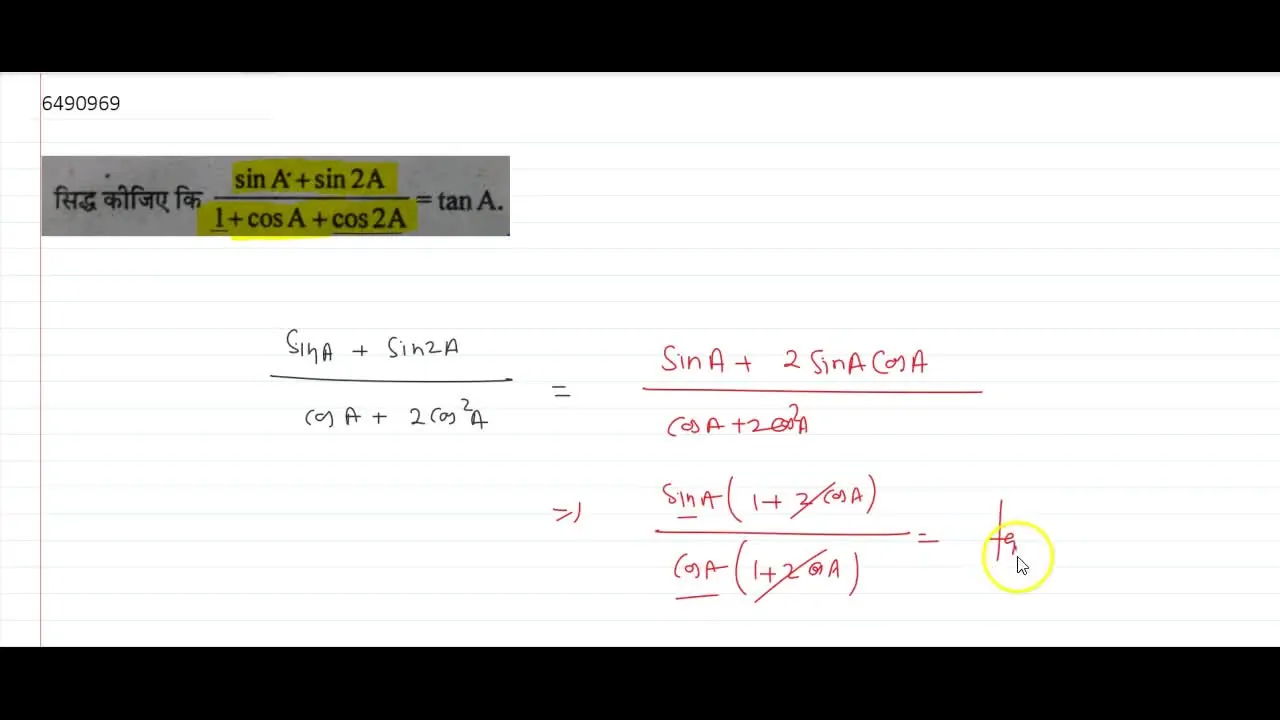 6490969
सिद्ध कीजिए कि sin A + sin 2A / 1 + cos A + cos 2A = tan A.
SinA + Sin2A / CosA + 2Cos²A = SinA + 2 SinA CosA / CosA + 2Cos²A
=> SinA (1 + 2 CosA) / CosA (1 + 2 CosA) =